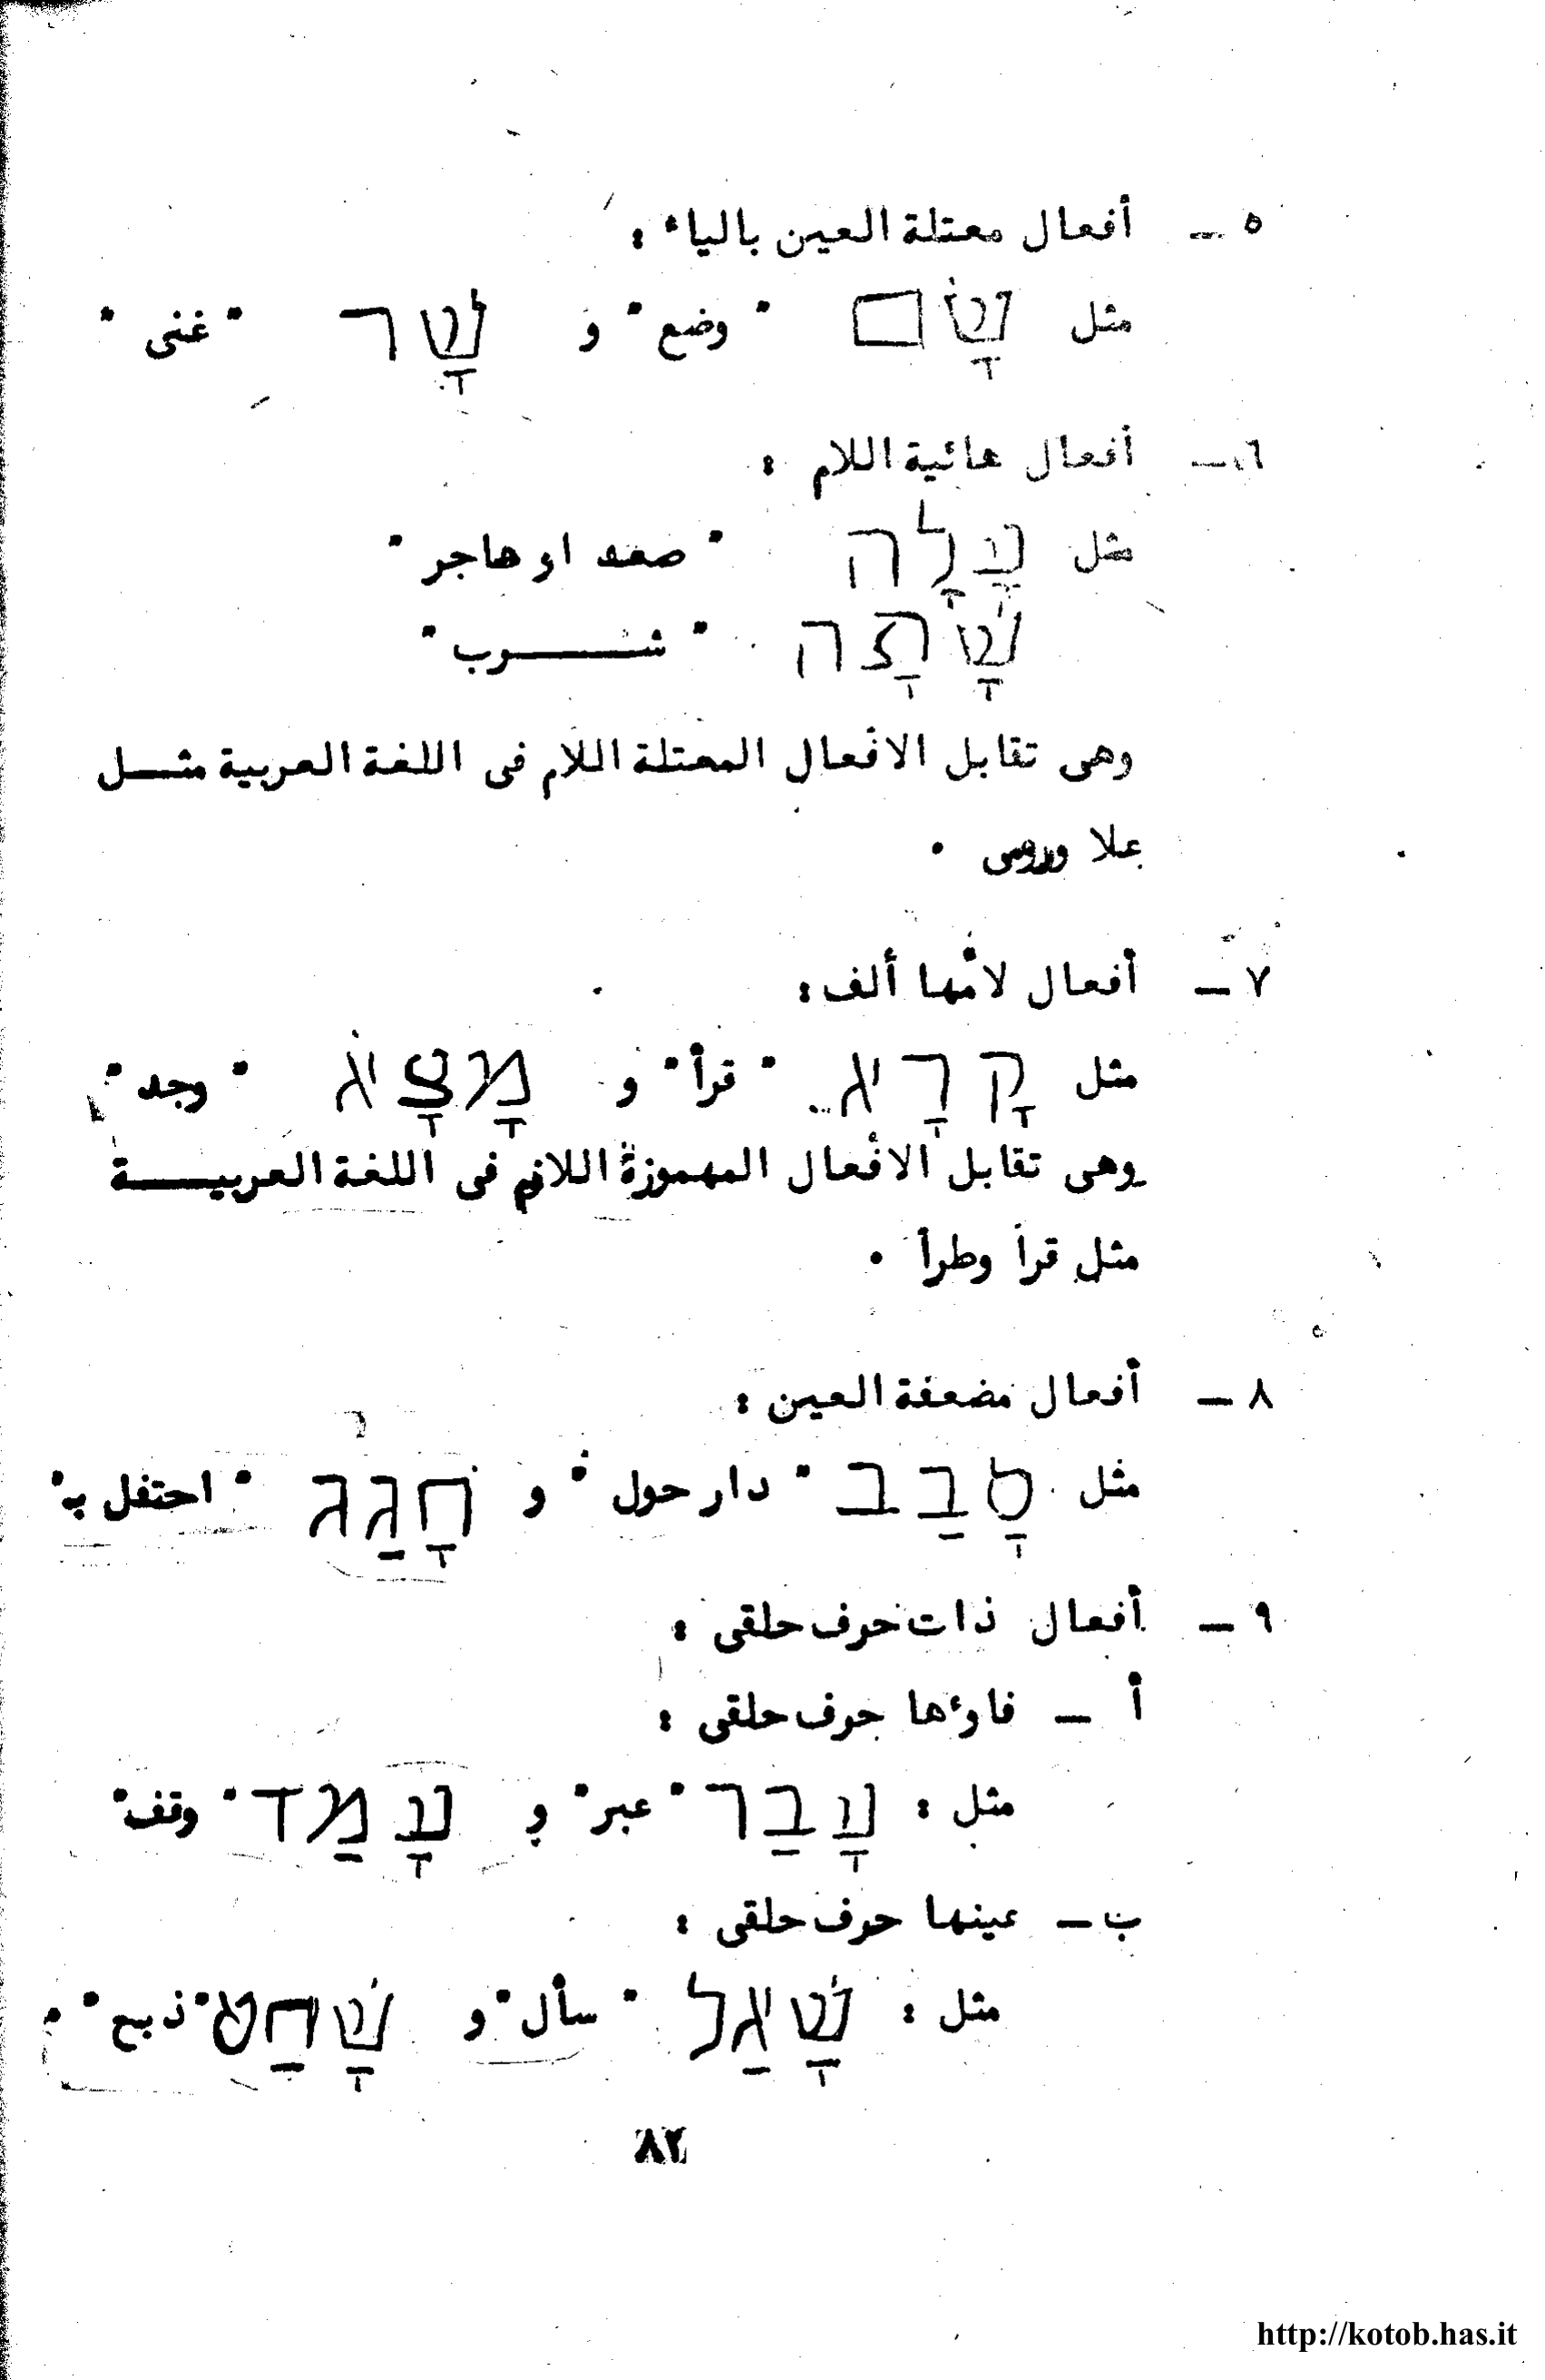 ٥ — أفعال معتلة العين بالياء :
مثل שָׂם " وضع " و שָׁר " غنى "
٦ — أفعال هائية اللام :
مثل עָלָה " صعد او هاجر "
שָׁתָה " شرب "
وهى تقابل الافعال المعتلة اللام فى اللغة العربية مثل
علا ورمى .
٧ — أفعال لامها ألف :
مثل קָרָא " قرأ " و מָצָא " وجد "
وهى تقابل الافعال المهموزة اللام فى اللغة العربية
مثل قرأ وطرأ .
٨ — أفعال مضعفة العين :
مثل סָבַב " دار حول " و חָגַג " احتفل بـ "
٩ — أفعال ذات حرف حلقى :
أ — فاوءها حرف حلقى :
مثل : עָבַר " عبر " و עָמַד " وقف "
ب — عينها حرف حلقى :
مثل : שָׁאַל " سأل " و שָׁחַט " ذبح " .
٨٢
http://kotob.has.it